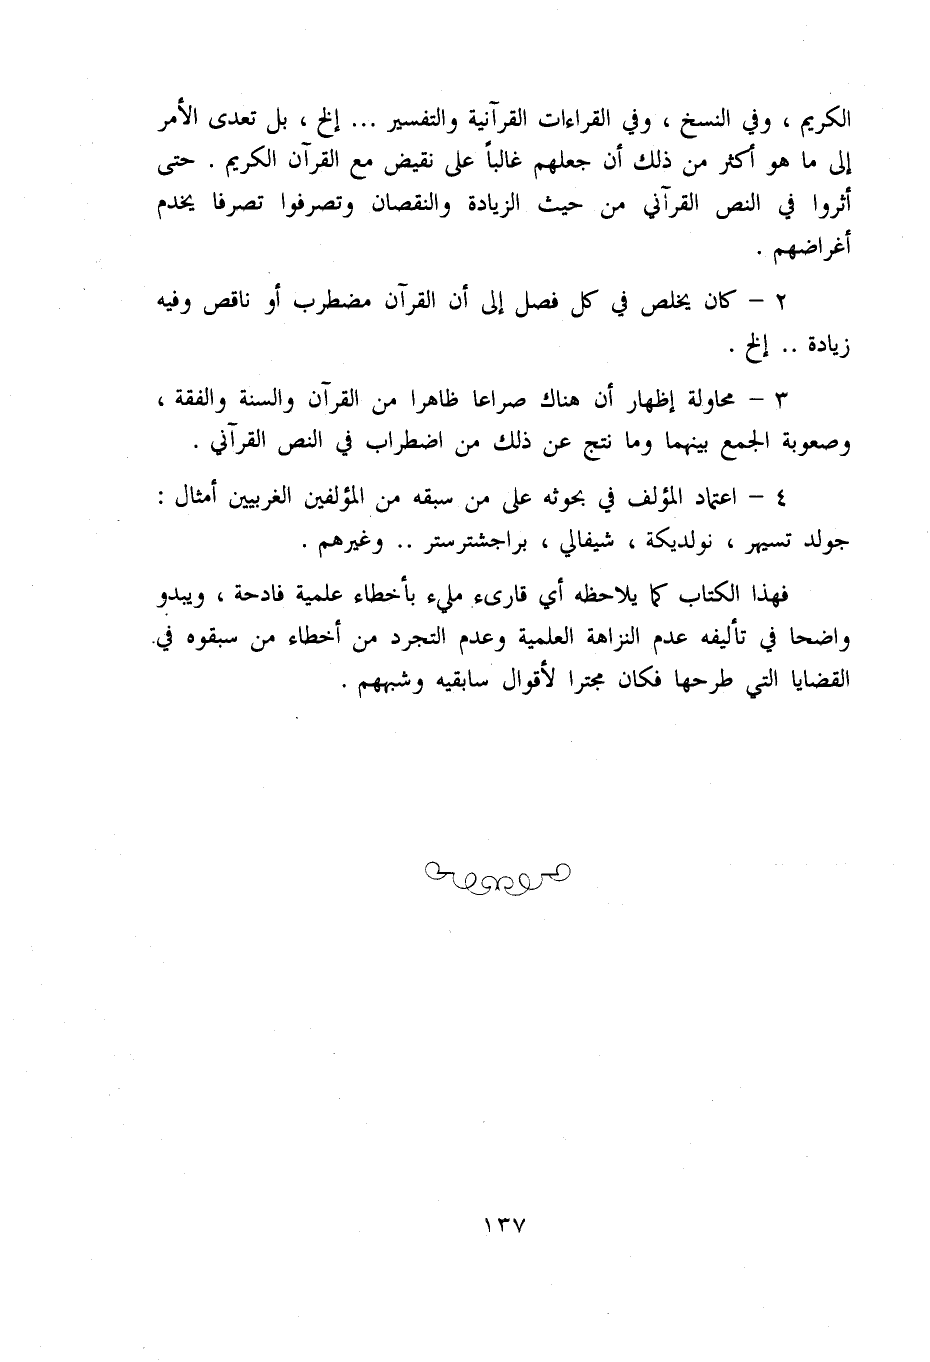 الكريم ، وفي النسخ ، وفي القراءات القرآنية والتفسير ... إلخ ، بل تعدى الأمر
إلى ما هو أكثر من ذلك أن جعلهم غالباً على نقيض مع القرآن الكريم . حتى
أثروا في النص القرآني من حيث الزيادة والنقصان وتصرفوا تصرفا يخدم
أغراضهم .
٢ - كان يخلص في كل فصل إلى أن القرآن مضطرب أو ناقص وفيه
زيادة .. إلخ .
٣ - محاولة إظهار أن هناك صراعا ظاهرا من القرآن والسنة والفقة ،
وصعوبة الجمع بينهما وما نتج عن ذلك من اضطراب في النص القرآني .
٤ - اعتماد المؤلف في بحوثه على من سبقه من المؤلفين الغربيين أمثال :
جولد تسيهر ، نولديكة ، شيفالي ، براجشترستر .. وغيرهم .
فهذا الكتاب كما يلاحظه أي قارىء مليء بأخطاء علمية فادحة ، ويبدو
واضحا في تأليفه عدم النزاهة العلمية وعدم التجرد من أخطاء من سبقوه في
القضايا التي طرحها فكان مجترا لأقوال سابقيه وشبههم .
١٣٧